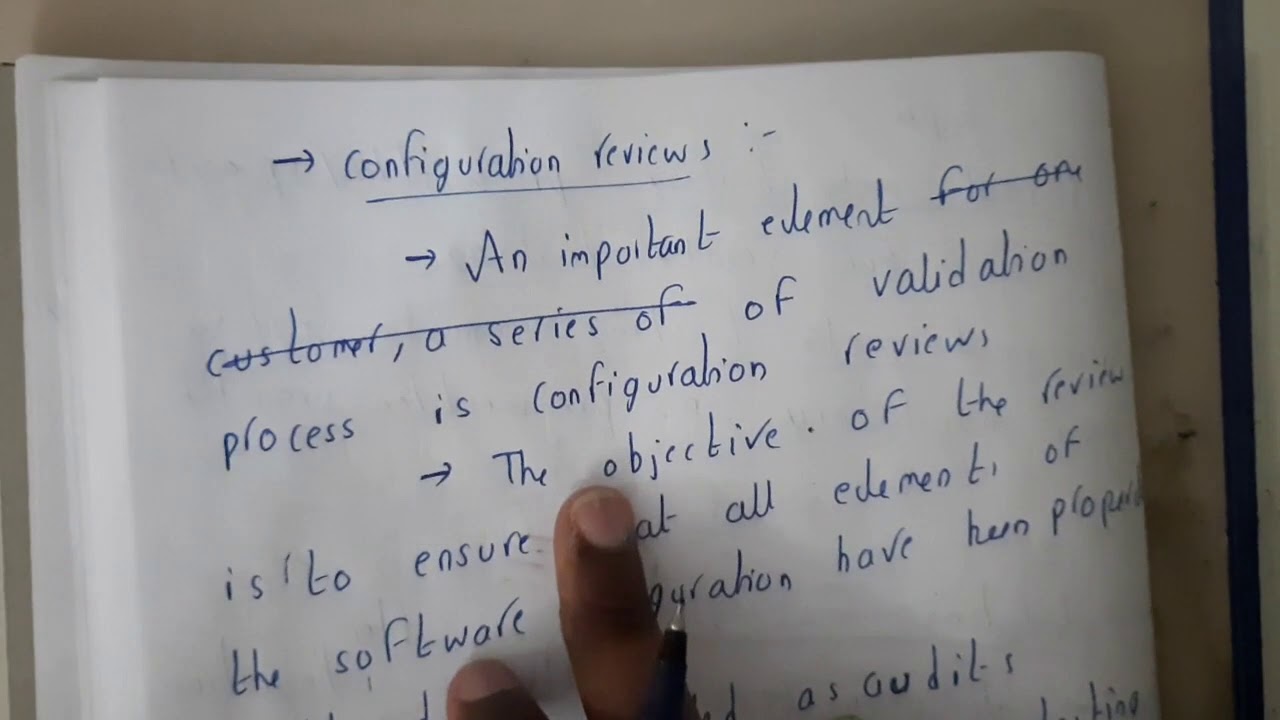 → Configuration reviews :-
→ An important element for one
customer, a series of of validation
process is configuration reviews
→ The objective . of the review
is to ensure at all elements of
the software guration have been
as audits